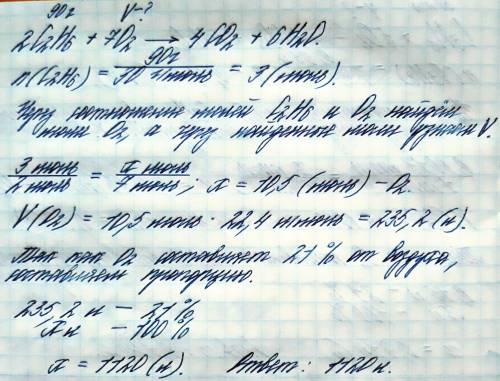 90г V-?
2C2H6 + 7O2 → 4CO2 + 6H2O.
n(C2H6) = 90г / 30 г/моль = 3 (моль).
Чрез соотношение молей C2H6 и O2 найдём
моли O2, а чрез найденные моли узнаем V.
3 моль / 2 моль = x моль / 7 моль; x = 10,5 (моль) – O2.
V(O2) = 10,5 моль · 22,4 л/моль = 235,2 (л).
Так как O2 составляет 21% от воздуха,
составляем пропорцию.
235,2 л – 21%
x л – 100%
x = 1120 (л). Ответ: 1120 л.